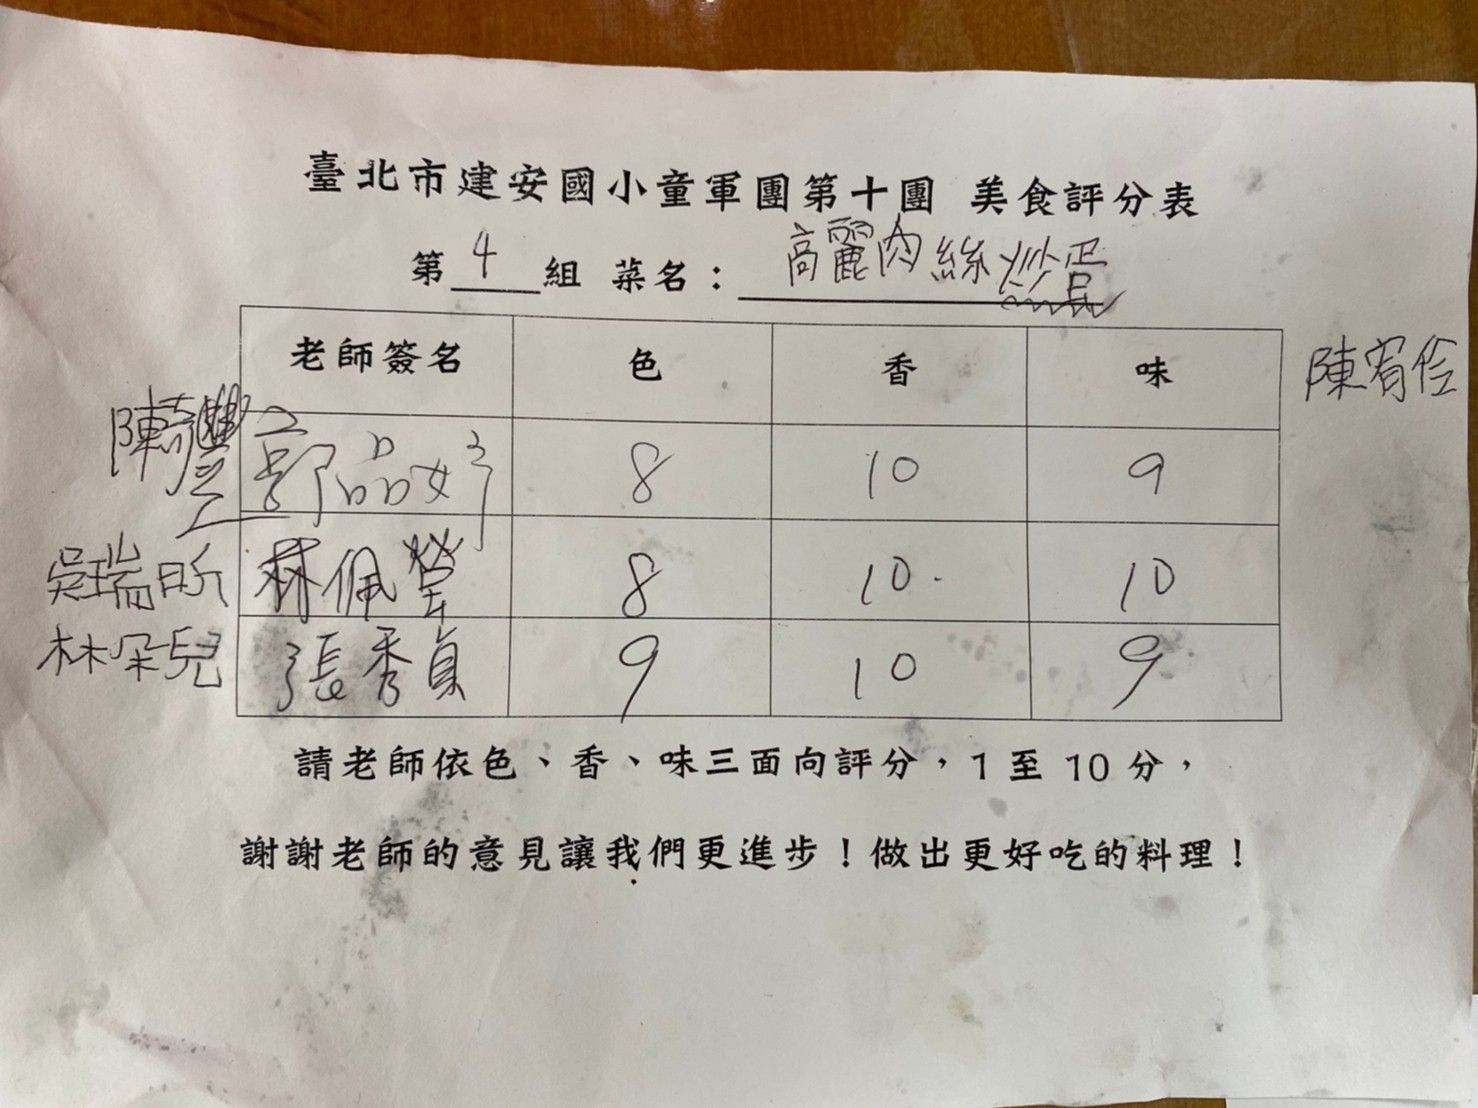 臺北市建安國小童軍團第十團 美食評分表
第 4 組 菜名：高麗肉絲炒蛋
老師簽名 色 香 味
陳宥伶
郭品妤 8 10 9
吳瑞昕
林佩瑩 8 10 10
林朵兒
張秀貞 9 10 9
請老師依色、香、味三面向評分，1 至 10 分，
謝謝老師的意見讓我們更進步！做出更好吃的料理！